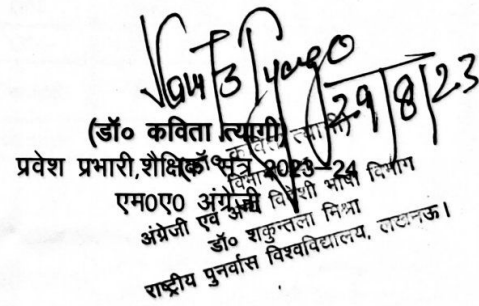 29/8/23
(डॉ० कविता त्यागी)
प्रवेश प्रभारी,शैक्षिक सत्र 2023-24
एम0ए0 अंग्रेजी
(डॉ० कविता त्यागी)
विभाग
अंग्रेजी एवं अन्य विदेशी भाषा विभाग
डॉ० शकुन्तला मिश्रा
राष्ट्रीय पुनर्वास विश्वविद्यालय, लखनऊ।